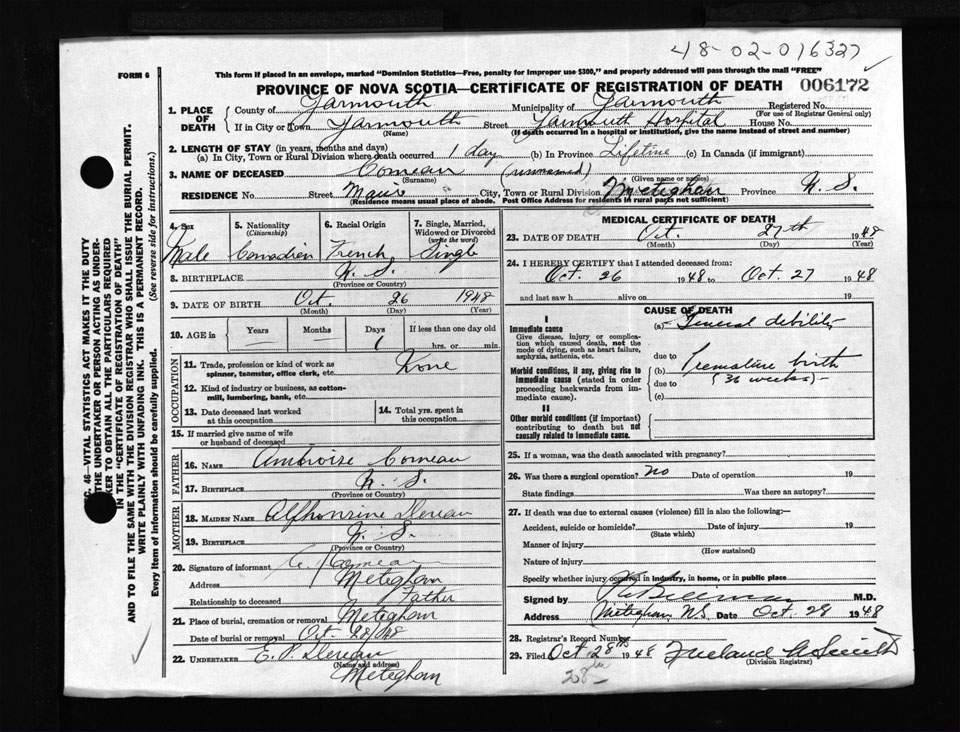 48-02-016327
FORM 6
This form if placed in an envelope, marked "Dominion Statistics—Free, penalty for improper use $300," and properly addressed will pass through the mail "FREE"
PROVINCE OF NOVA SCOTIA—CERTIFICATE OF REGISTRATION OF DEATH 006172
1. PLACE OF DEATH
County of Yarmouth Municipality of Yarmouth Registered No.
(For use of Registrar General only)
If in City or Town Yarmouth Street Yarmouth Hospital House No.
(Name) (If death occurred in a hospital or institution, give the name instead of street and number)
2. LENGTH OF STAY (in years, months and days)
(a) In City, Town or Rural Division where death occurred 1 day (b) In Province Lifetime (c) In Canada (if immigrant)
3. NAME OF DECEASED Comeau (unnamed)
(Surname) (Given name or names)
RESIDENCE No. Street Main City, Town or Rural Division Meteghan Province N. S.
(Residence means usual place of abode. Post Office Address for residents in rural parts not sufficient)
4. Sex 5. Nationality (Citizenship) 6. Racial Origin 7. Single, Married, Widowed or Divorced (write the word)
Male Canadian French Single
8. BIRTHPLACE N. S.
(Province or Country)
9. DATE OF BIRTH Oct. 26 1948
(Month) (Day) (Year)
10. AGE in Years Months Days If less than one day old
1 hrs. or min.
OCCUPATION
11. Trade, profession or kind of work as spinner, teamster, office clerk, etc. None
12. Kind of industry or business, as cotton-mill, lumbering, bank, etc.
13. Date deceased last worked at this occupation
14. Total yrs. spent in this occupation
15. If married give name of wife or husband of deceased
FATHER
16. NAME Ambroise Comeau
17. BIRTHPLACE N. S.
(Province or Country)
MOTHER
18. MAIDEN NAME Alphonsine
19. BIRTHPLACE N. S.
(Province or Country)
20. Signature of informant A. Comeau
Address Meteghan
Relationship to deceased Father
21. Place of burial, cremation or removal Meteghan
Date of burial or removal Oct. 28/48
22. UNDERTAKER E. P.
(Name and address)
Meteghan
MEDICAL CERTIFICATE OF DEATH
23. DATE OF DEATH Oct. 27th 1948
(Month) (Day) (Year)
24. I HEREBY CERTIFY that I attended deceased from:
Oct. 26 1948 to Oct. 27 1948
and last saw h alive on 19
CAUSE OF DEATH
I
Immediate cause
Give disease, injury or complication which caused death, not the mode of dying, such as heart failure, asphyxia, asthenia, etc.
(a) General debility
due to
Morbid conditions, if any, giving rise to immediate cause (stated in order proceeding backwards from immediate cause).
(b) Premature birth
due to (36 weeks) -
(c)
II
Other morbid conditions (if important) contributing to death but not causally related to immediate cause.
25. If a woman, was the death associated with pregnancy?
26. Was there a surgical operation? No Date of operation 19
State findings Was there an autopsy?
27. If death was due to external causes (violence) fill in also the following:—
Accident, suicide or homicide? Date of injury 19
(State which)
Manner of injury
(How sustained)
Nature of injury
Specify whether injury occurred in industry, in home, or in public place
Signed by M.D.
Address Meteghan, N.S. Date Oct. 28 1948
28. Registrar's Record Number
29. Filed Oct 28th 1948
(Division Registrar)
28
SEC. 46—VITAL STATISTICS ACT MAKES IT THE DUTY
THE UNDERTAKER OR PERSON ACTING AS UNDER-
TAKER TO OBTAIN ALL THE PARTICULARS REQUIRED
IN THE "CERTIFICATE OF REGISTRATION OF DEATH"
AND TO FILE THE SAME WITH THE DIVISION REGISTRAR WHO SHALL ISSUE THE BURIAL PERMIT.
WRITE PLAINLY WITH UNFADING INK. THIS IS A PERMANENT RECORD.
Every item of information should be carefully supplied. (See reverse side for instructions.)